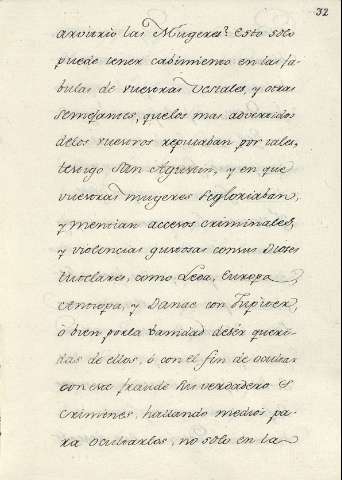 32
arvitrio las Mugeres? Esto solo
puede tener cabimiento en las fa-
bulas de vuestras Vestales, y otras
semejantes, quelos mas advertidos
delos vuestros reputaban por tales,
testigo San Agustin, y en que
vuestras mugeres segloriaban,
y mentian accesos criminales,
y violencias gustosas consus Dioses
tutelares, como Leda, Europa,
Antiopa, y Danae con Jupiter,
ó bien porla banidad deser queri-
das de ellos, ó con el fin de ocultar
con este fraude sus verdaderos
crimenes, hallando medios pa-
ra ocultarlos, no solo en la